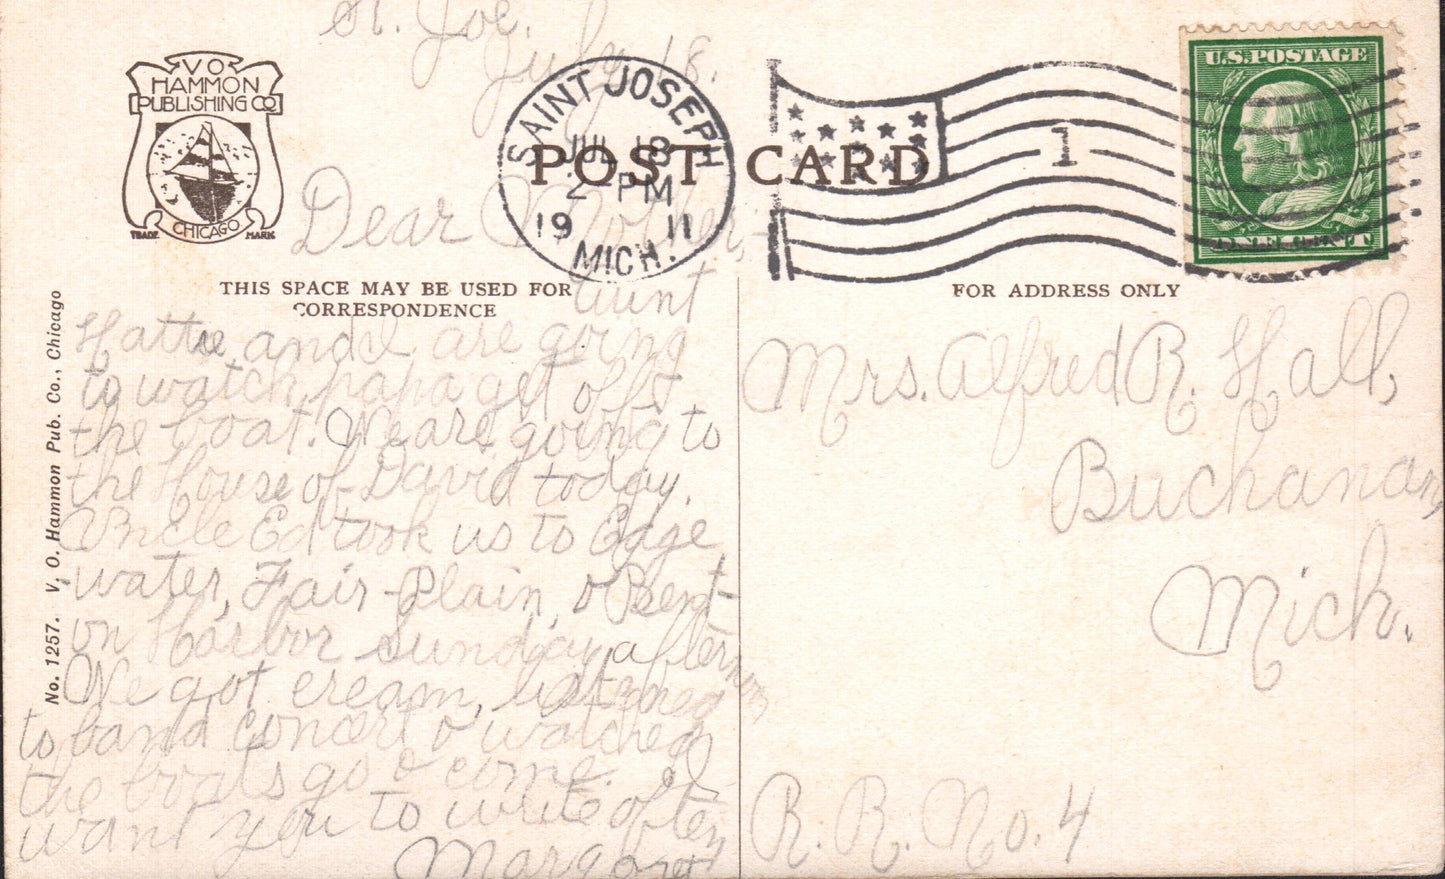 St. Joe.
July 18.
V O
HAMMON
PUBLISHING CO
CHICAGO
TRADE MARK
SAINT JOSEPH
JUL 18
2 - PM
19 11
MICH.
1
U.S. POSTAGE
ONE CENT
POST CARD
THIS SPACE MAY BE USED FOR
CORRESPONDENCE
FOR ADDRESS ONLY
No. 1257. V. O. Hammon Pub. Co., Chicago
Dear Mother,-
Aunt
Hattie, and I are going
to watch papa get off
the boat. We are going to
the House of David today.
Uncle Ed took us to Edge
water, Fair-Plain, & Bent-
on Harbor Sunday afternoon
We got cream, listened
to band concert & watched
the boats go & come. I
want you to write often
Margaret
Mrs. Alfred R. Hall,
Buchanan,
Mich.
R. R. No. 4